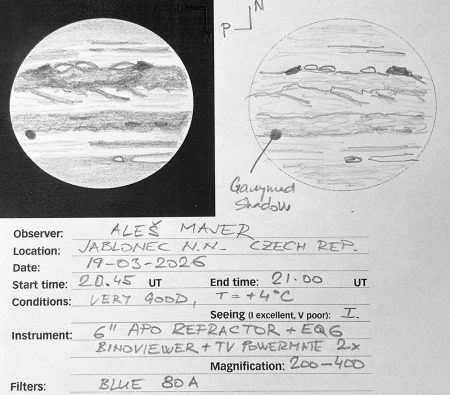 N
P
Ganymed
Shadow
Observer: ALEŠ MAJER
Location: JABLONEC N.N. CZECH REP.
Date: 19-03-2026
Start time: 20.45 UT End time: 21.00 UT
Conditions: VERY GOOD, T=+4°C
Seeing (I excellent, V poor): I.
Instrument: 6" APO REFRACTOR + EQ6
BINOVIEWER + TV POWERMATE 2x
Magnification: 200-400
Filters: BLUE 80A